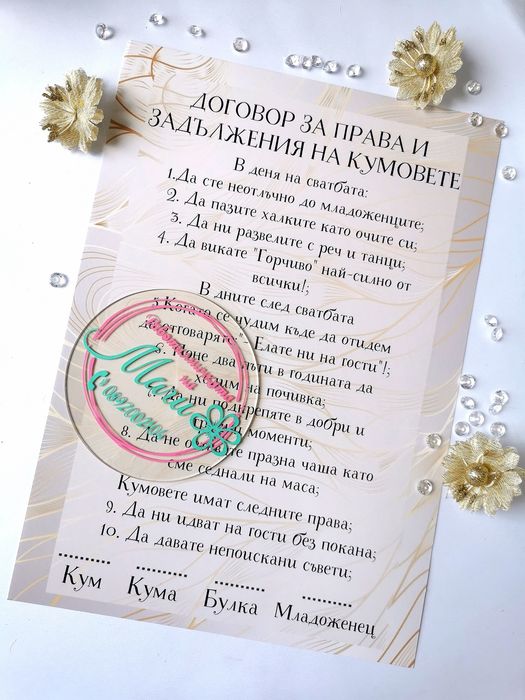 ДОГОВОР ЗА ПРАВА И
ЗАДЪЛЖЕНИЯ НА КУМОВЕТЕ
В деня на сватбата:
1.Да сте неотлъчно до младоженците;
2. Да пазите халките като очите си;
3. Да ни развелите с реч и танци;
4. Да викате "Горчиво" най-силно от
всички!;
В дните след сватбата
5.Когато се чудим къде да отидем
да отговаряте:"- Елате ни на гости"!;
6. Поне два пъти в годината да
ходим на почивка;
да ни подкрепяте в добри и
моменти;
8. Да не оставяте празна чаша като
сме седнали на маса;
Кумовете имат следните права;
9. Да ни идват на гости без покана;
10. Да давате непоискани съвети;
Кум Кума Булка Младоженец